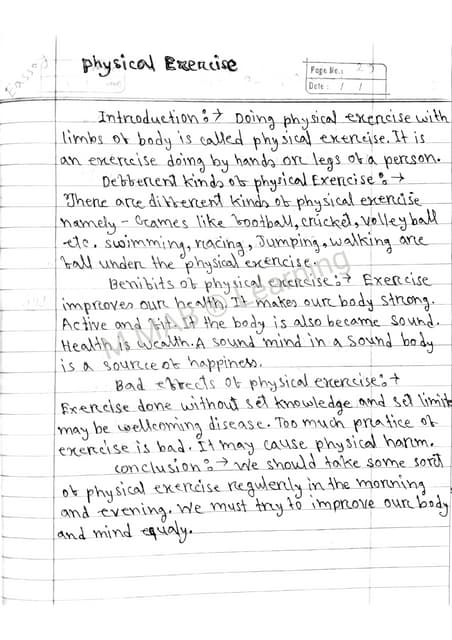 Eassay
Physical Exercise
Page No.: 23
Date: / /
Introduction:→ Doing physical exercise with
limbs of body is called physical exercise. It is
an exercise doing by hands or legs of a person.
Defferent kinds of physical Exercise:→
There are different kinds of physical exercise
namely - Games like football, cricket, volley ball
etc. swimming, racing, Jumping, walking are
fall under the physical exercise.
Benifits of physical exercise:→ Exercise
improves our health. It makes our body strong.
Active and fit. If the body is also became sound.
Health is wealth. A sound mind in a sound body
is a source of happiness.
Bad effects of physical exercise:→
Exercise done without set knowledge and set limit
may be wellcoming disease. Too much pratice of
exercise is bad. It may cause physical harm.
conclusion:→ We should take some sort
of physical exercise regulerly in the morning
and evening. We must try to improve our body
and mind equaly.
M MAR ® Learning